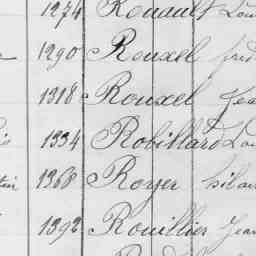 1274 Rouault Lou
1290 Rouxel fred
1318 Rouxel Jea
1334 Robillard Lou
1368 Royer silan
1392 Rouillier Jean